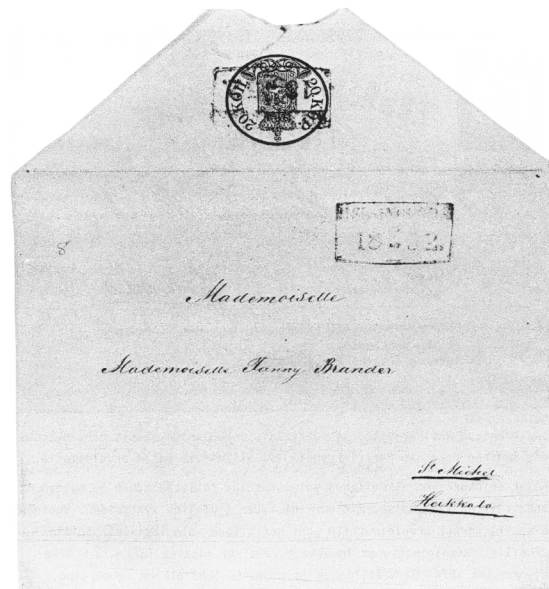 20.КОП. 20 KOP.
8
Mademoiselle
Mademoiselle Fanny Brander
St Michel
Heikkala